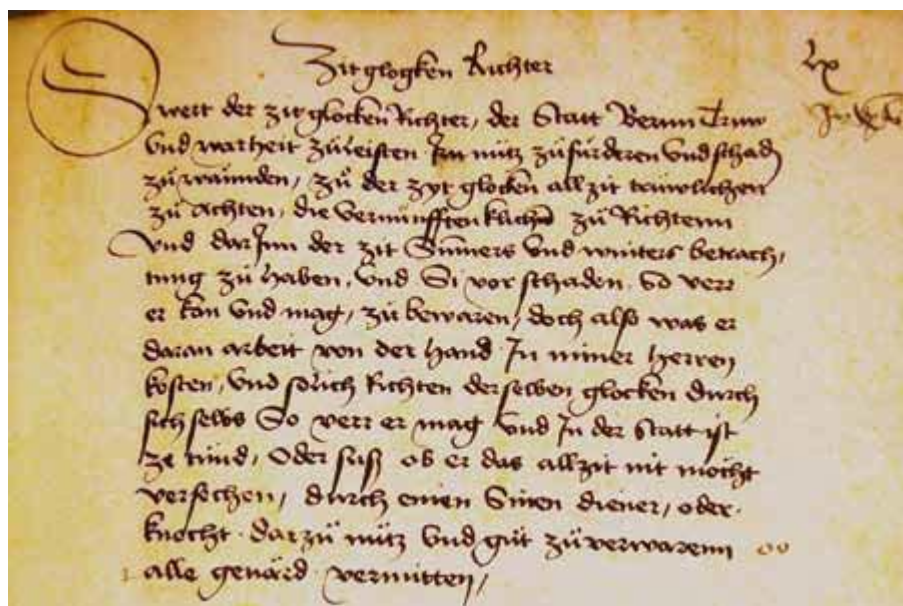 Zitglogken Richter
lx
Swert der zitglocken Richter, der Statt Bernn Truw
vnd warheit zůleisten Irn nutz zůfürderen vnd schadn
zůwännden, zů der zyt glocken allzit trüwlichen
zů Achten, die vernünfftenklichen zů Richtenn
Vnd darInn der zit Sumers vnd winters betrach,
tung zů haben, vnd Si vor schaden, So verr
er kan vnd mag, zů bewaren, doch also was er
daran arbeit von der hand In miner herren
kosten, vnd sölich Richten derselben glocken durch
sich selbs So verr er mag vnd In der Statt ist
ze tund, Oder suß ob er das allzit nit möcht
versechen, durch einen Sinen diener, oder
knecht. darzů nutz vnd gůt zůverwarenn
alle genärd vermitten,